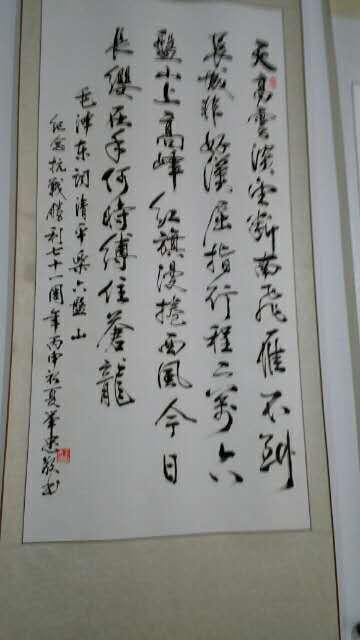 天高雲淡望斷南飛雁不到
長城非好漢屈指行程二萬六
盤山上高峰紅旗漫捲西風今日
長纓在手何時縛住蒼龍
毛澤東詞清平樂六盤山
紀念抗戰勝利七十一周年丙申初夏